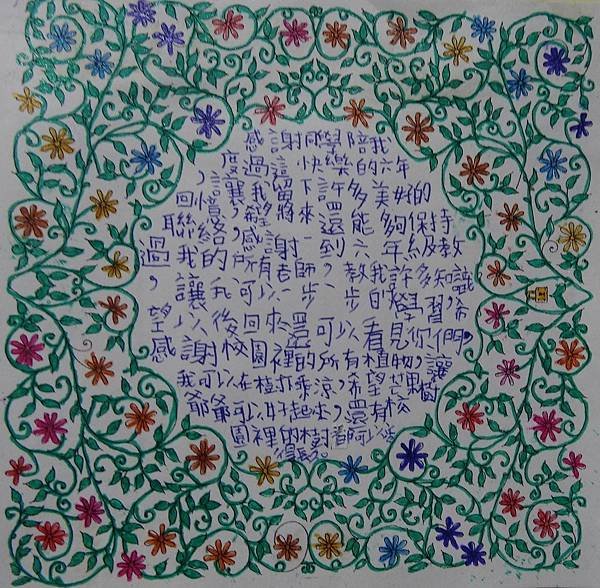 感謝同學陪我
度過這快樂的六年
,讓我留下許多美好的
回憶,希將來還能夠保持
聯絡,感謝一到六年級教
過我的所有老師,教我許多知識
,讓我可以一步一步的學習,希
望以後回來還可以看見你們,
感謝校園裡的所有植物,讓
我可以在樹下乘涼,希望芒果樹
爺爺可以好起來,還有校
園裡的樹可以
得長。